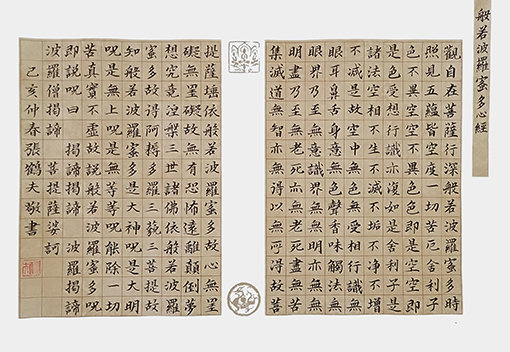 般若波羅蜜多心經
觀自在菩薩行深般若波羅蜜多時
照見五蘊皆空度一切苦厄舍利子
色不異空空不異色色即是空空即
是色受想行識亦復如是舍利子是
諸法空相不生不滅不垢不淨不增
不減是故空中無色無受想行識無
眼耳鼻舌身意無色聲香味觸法無
眼界乃至無意識界無無明亦無無
明盡乃至無老死亦無老死盡無苦
集滅道無智亦無得以無所得故菩
提薩埵依般若波羅蜜多故心無罣
礙無罣礙故無有恐怖遠離顛倒夢
想究竟涅槃三世諸佛依般若波羅
蜜多故得阿耨多羅三藐三菩提故
知般若波羅蜜多是大神呪是大明
呪是無上呪是無等等呪能除一切
苦真實不虛故說般若波羅蜜多呪
即說呪曰 揭諦揭諦 波羅揭諦
波羅僧揭諦 菩提薩婆訶
己亥仲春張鶴夫敬書